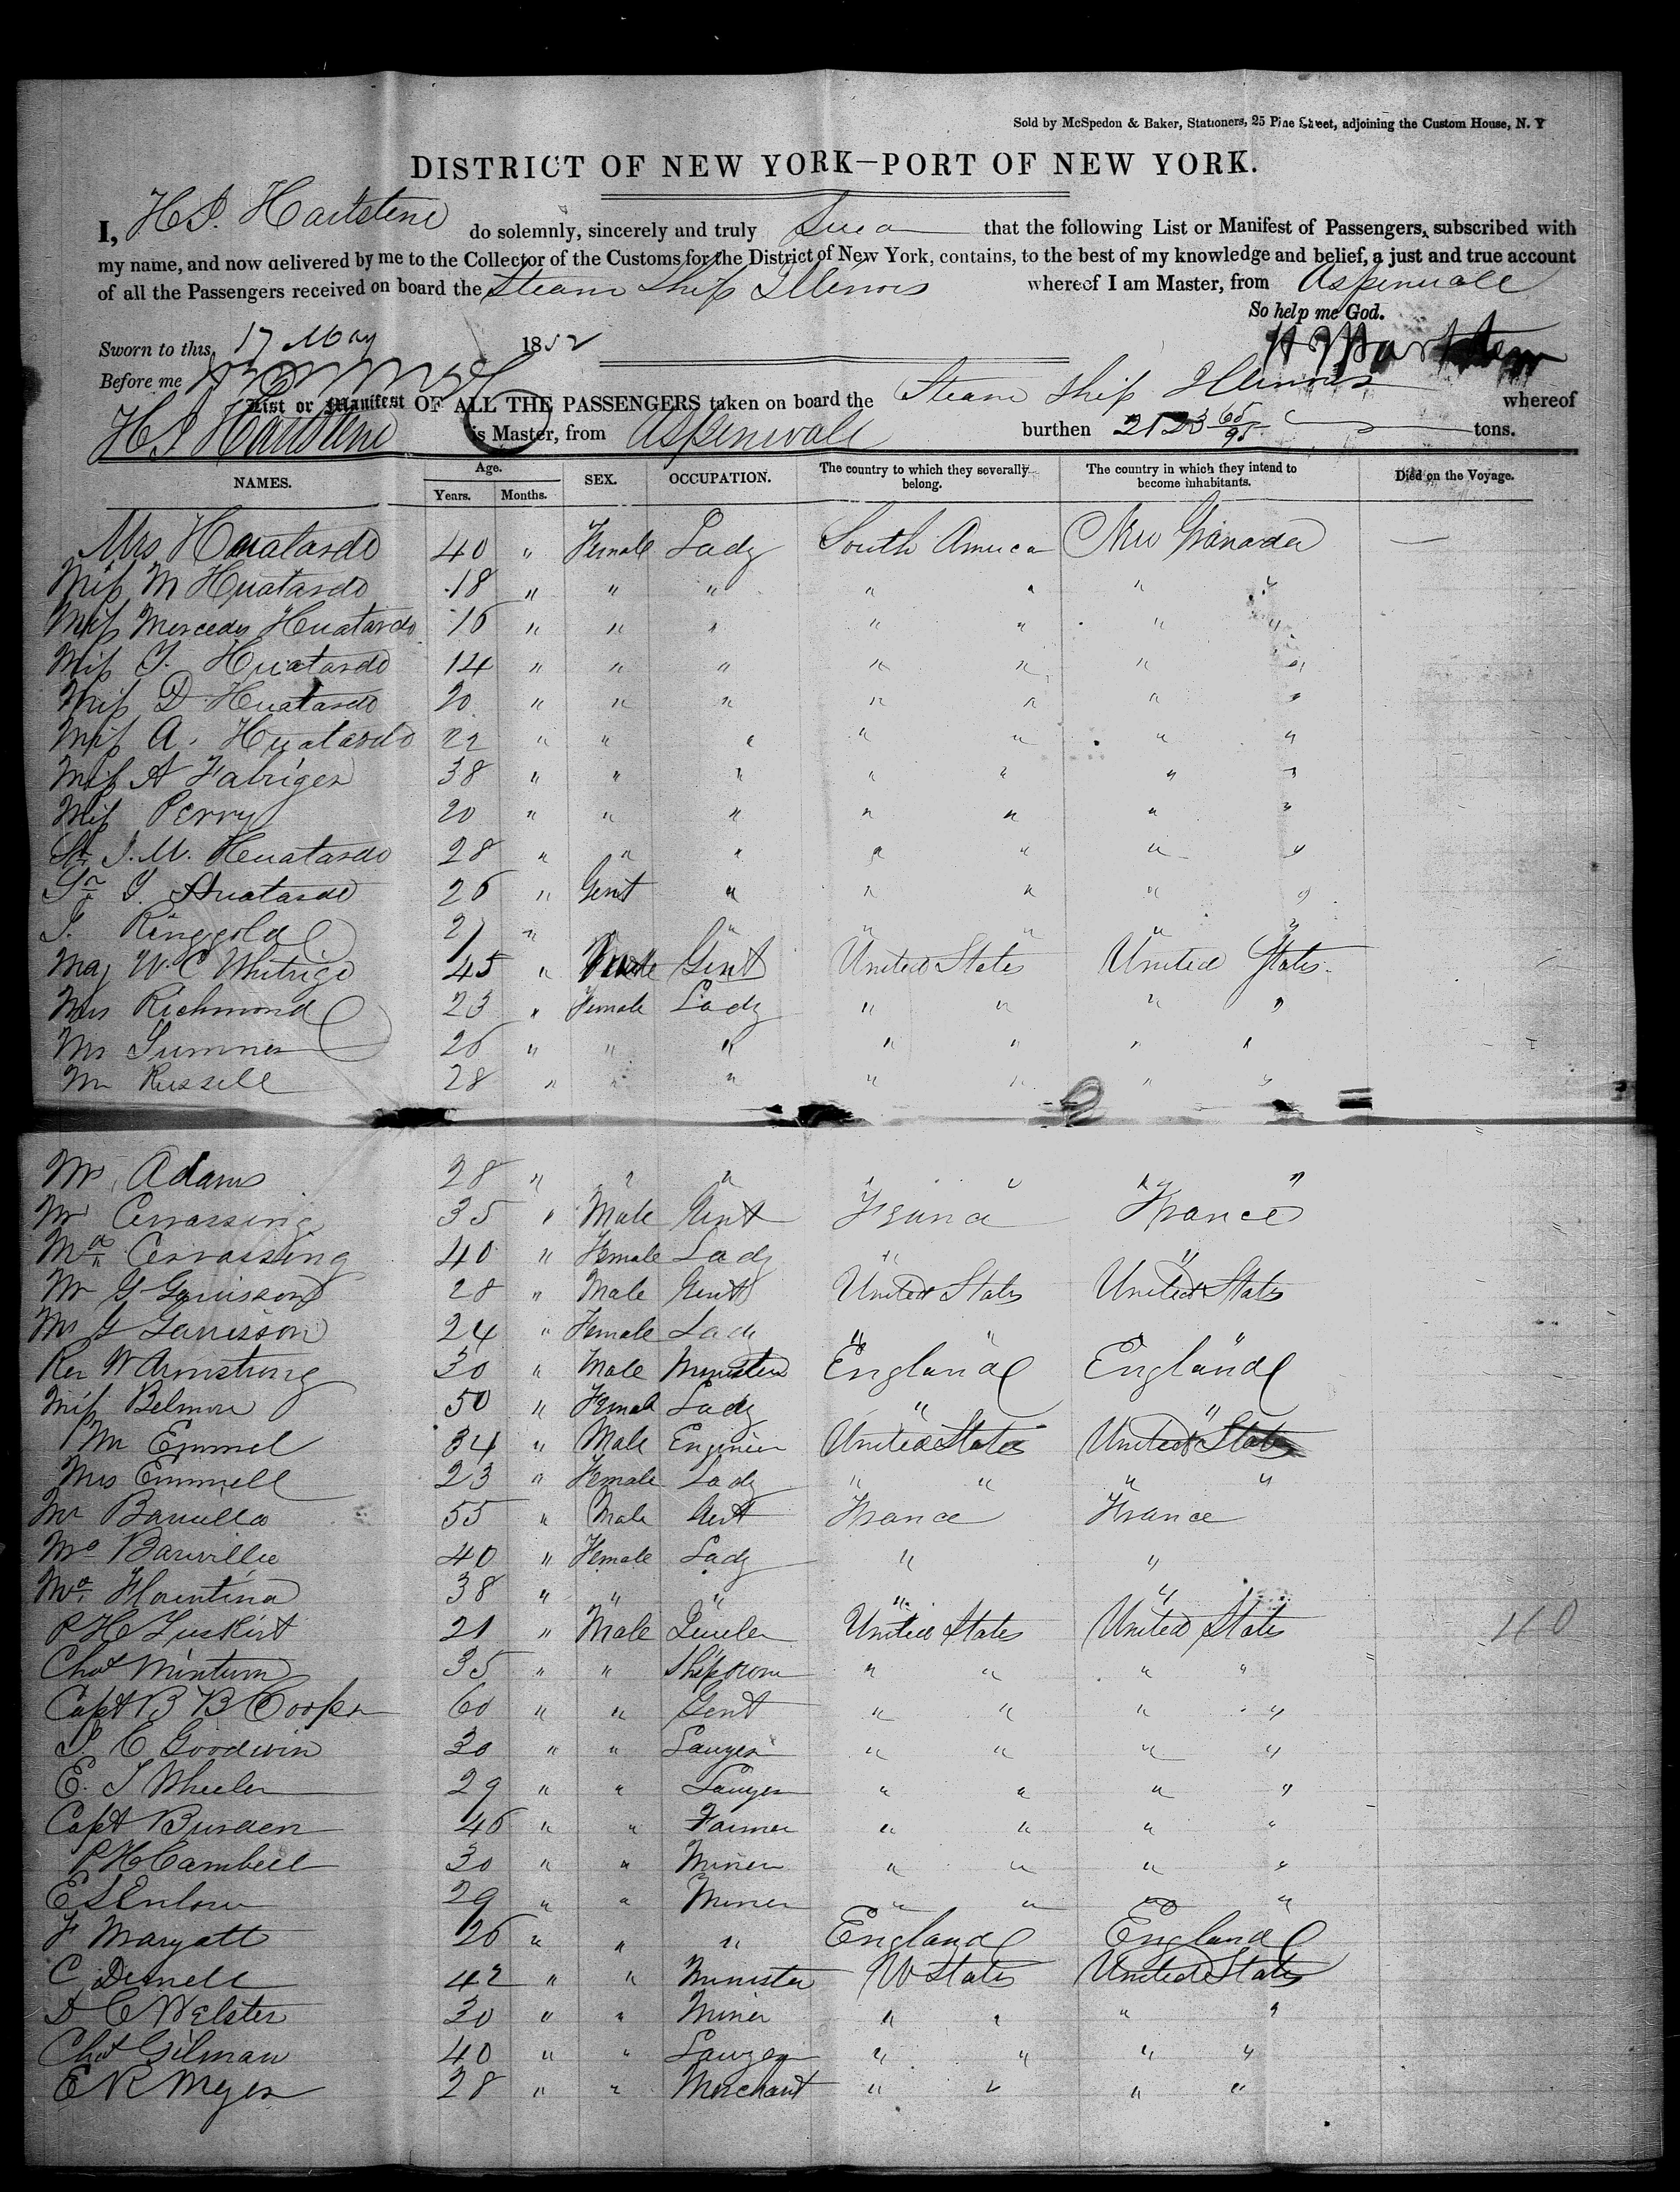 Sold by McSpedon & Baker, Stationers, 25 Pine Street, adjoining the Custom House, N. Y
DISTRICT OF NEW YORK—PORT OF NEW YORK.
I, H. J. Hartstene do solemnly, sincerely and truly Swear that the following List or Manifest of Passengers, subscribed with
my name, and now delivered by me to the Collector of the Customs for the District of New York, contains, to the best of my knowledge and belief, a just and true account
of all the Passengers received on board the Steam Ship Illinois whereof I am Master, from Aspinwall
So help me God.
Sworn to this, 17 May 1852
Before me
List or Manifest OF ALL THE PASSENGERS taken on board the Steam Ship Illinois whereof
H J Hartstene is Master, from Aspinwall burthen 2123 65/95 tons.
NAMES. Age. Years. Months. SEX. OCCUPATION. The country to which they severally belong. The country in which they intend to become inhabitants. Died on the Voyage.
Mrs Huatardo 40 " Female Lady South America New Granada —
Miss M Huatardo 18 " " " " " " "
Miss Mercedes Huatardo 16 " " " " " " "
Miss Huatardo 14 " " " " " " "
Miss D Huatardo 20 " " " " " " "
Miss A. Huatardo 22 " " " " " " "
Miss A Fabriger 38 " " " " " " "
Miss Perry 20 " " " " " " "
J. M. Huatardo 28 " " " " " " "
Sr Huatardo 26 " Gent " " " " "
Ringgold 21 " " " " " "
Maj W. C Whitrige 45 " Male Gent United States United States
Mrs Richmond 23 " Female Lady " " " "
Mrs Sumner 26 " " " " " " "
Mrs Russell 28 " " " " " " "
Mrs Adams 28 " " " " " " "
Mr Cerrassing 35 " Male Gent France France
Ma Cerrassing 40 " Female Lady " "
Mr G Garrison 28 " Male Gent United States United States
Mrs G Garrisson 24 " Female Lady " " "
Rev W Armstrong 30 " Male Minister England England
Miss Belmore 50 " Female Lady " "
Mr Emmel 34 " Male Engineer United States United States
Mrs Emmell 23 " Female Lady " " " "
Mr Barrilla 55 " Male Gent France France
Ma Barwillie 40 " Female Lady " "
Ma Florintina 38 " " " " "
P H 21 " Male United States United States
Chas Minturn 35 " " " " " "
Capt B B Cooper 60 " " Gent " " " "
C Goodwin 30 " " Lawyer " " " "
E. J Wheeler 29 " " Lawyer " " " "
Capt Burden 46 " " Farmer " " " "
P H Cambell 30 " " Miner " " " "
E S Enlow 29 " " Miner " " " "
F Maryatt 26 " " " England England
C 42 " " Minister U States United States
D C Welster 30 " " Miner " " " "
Chas Gilman 40 " " Lawyer " " " "
E R Meyer 28 " " Merchant " " " "